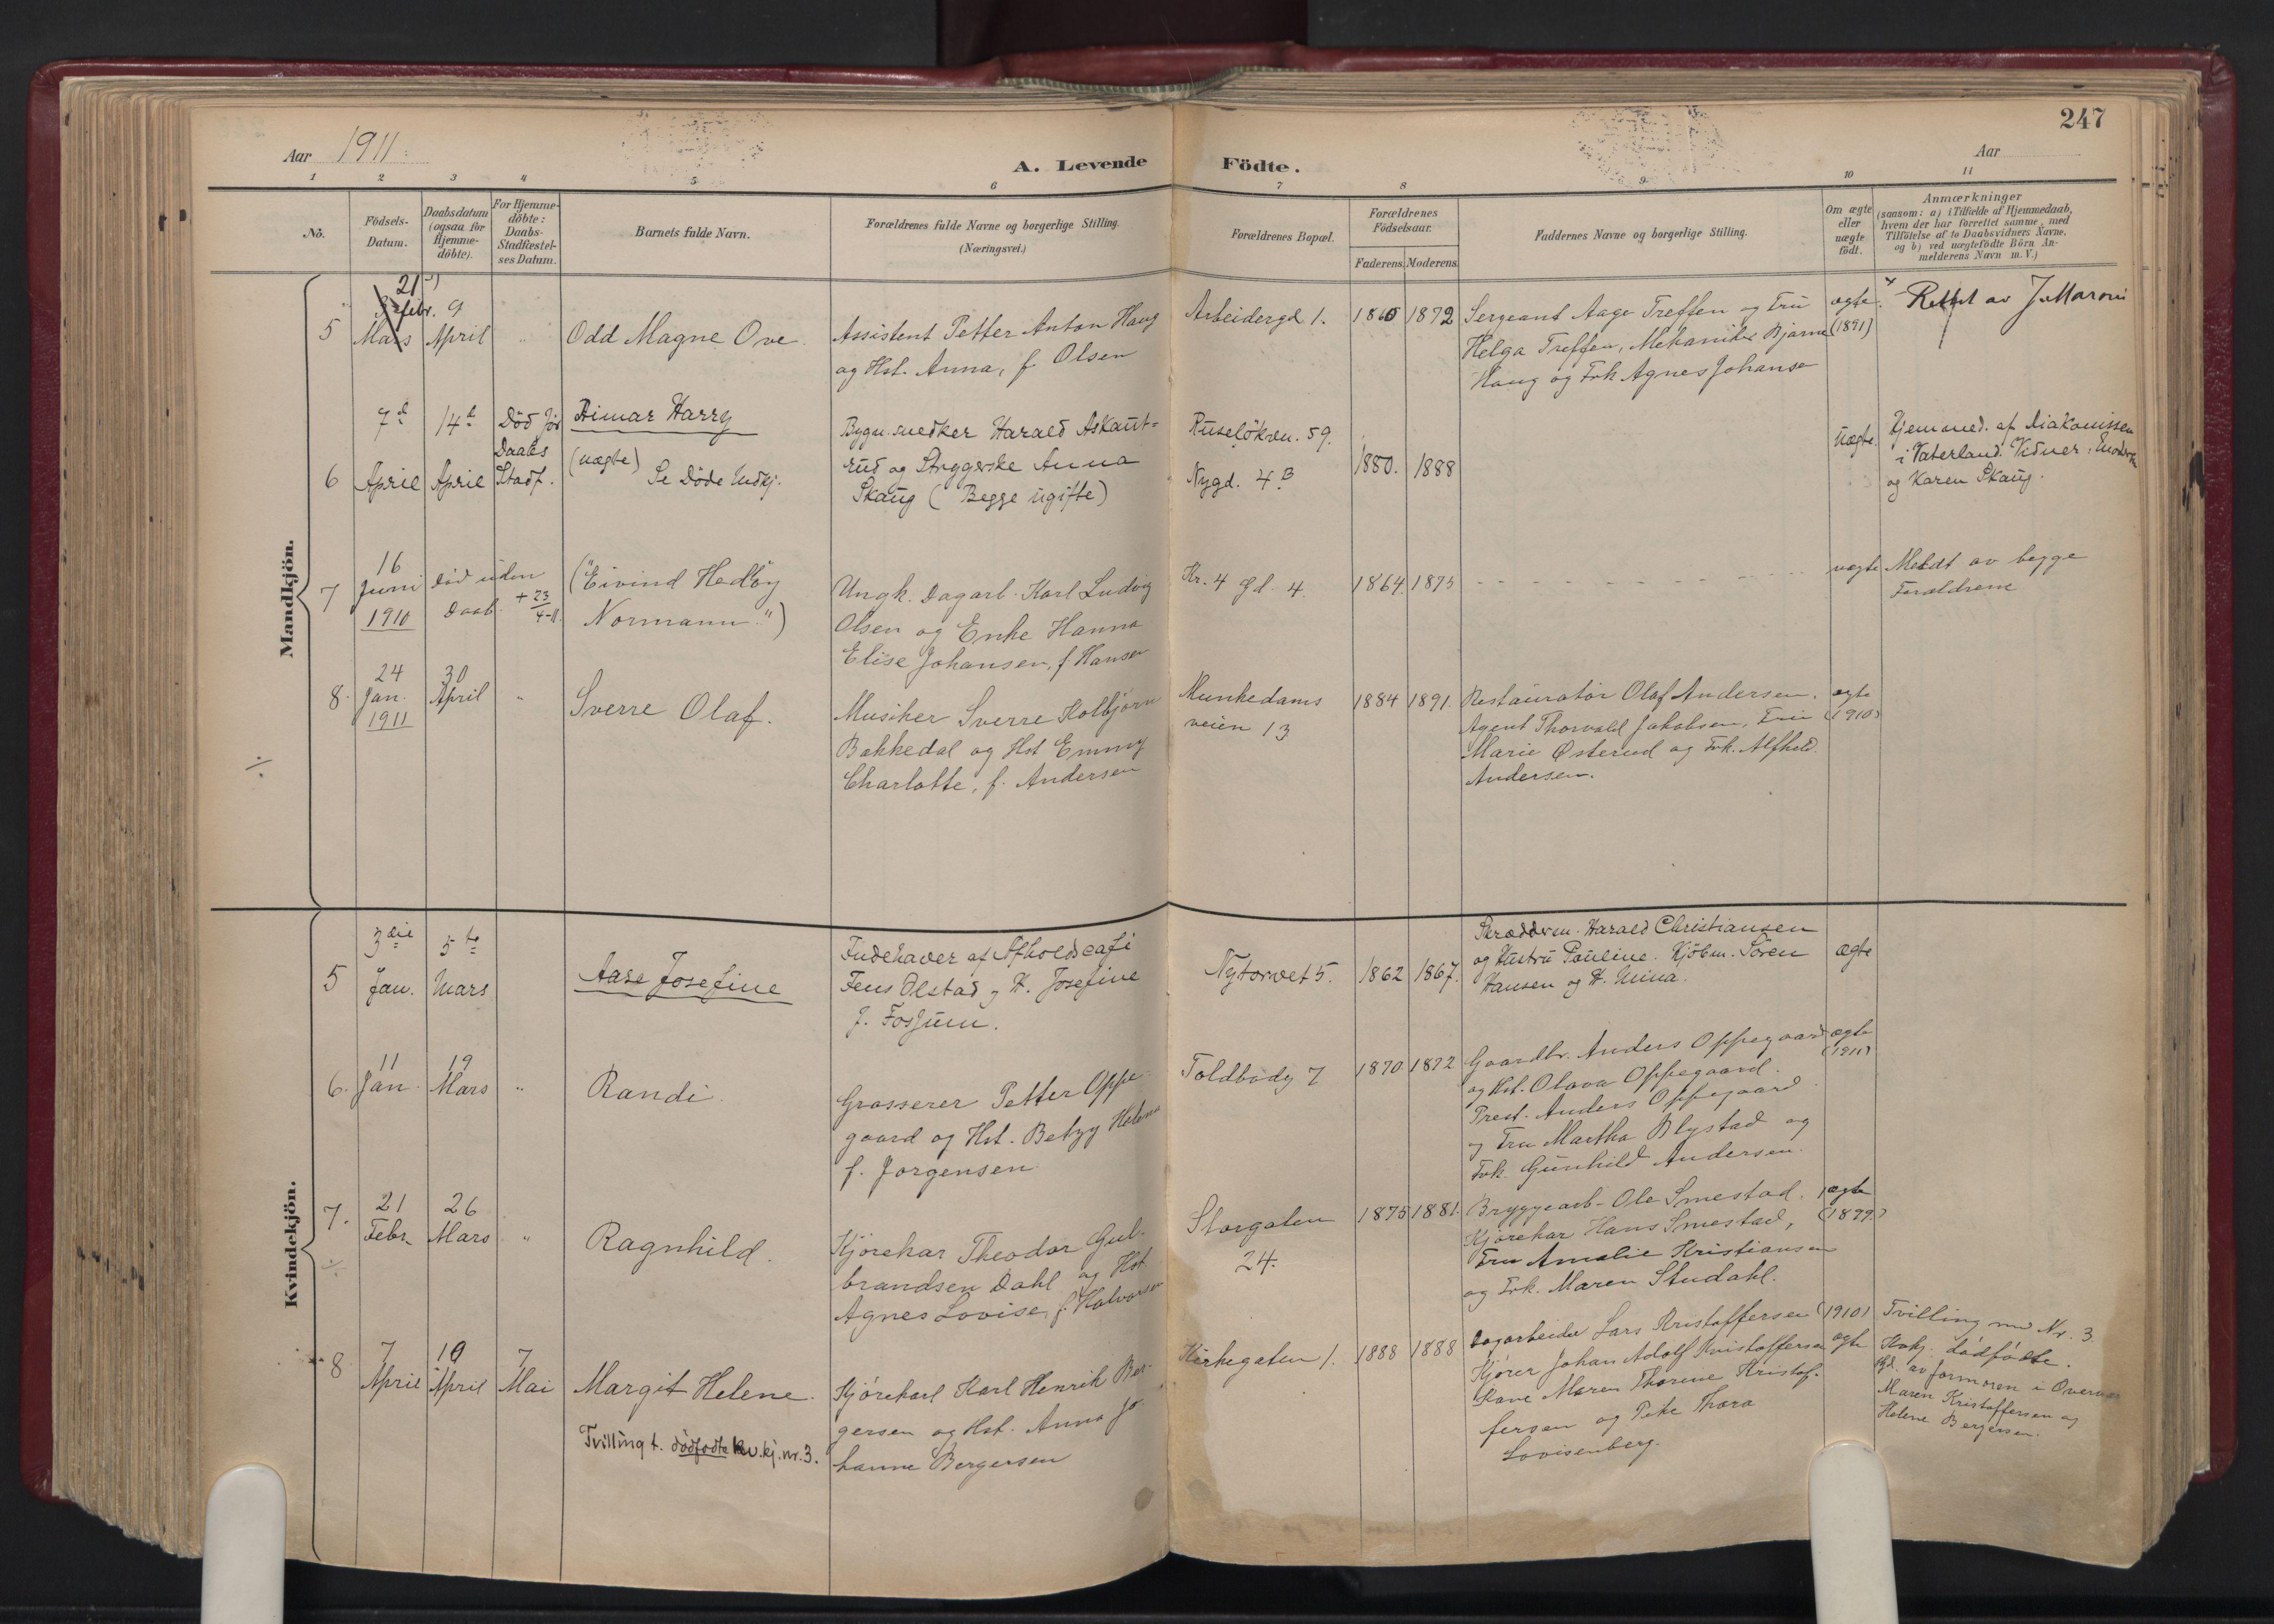 247
Aar 1911.
A. Levende Födte.
Aar
1 2 3 4 5 6 7 8 9 10 11
No.
Födsels-
Datum.
Daabsdatum
(ogsaa for
Hjemme-
döbte).
For Hjemme-
döbte:
Daabs-
Stadfæstel-
ses Datum.
Barnets fulde Navn.
Forældrenes fulde Navne og borgerlige Stilling.
(Næringsvei.)
Forældrenes Bopæl.
Forældrenes
Födselsaar.
Faderens. Moderens.
Faddernes Navne og borgerlige Stilling.
Om ægte
eller
uægte
födt.
Anmærkninger
(saasom: a) i Tilfælde af Hjemmedaab,
hvem der har forrettet samme, med
Tilföielse af to Daabsvidners Navne,
og b) ved uægtefödte Börn An-
melderens Navn m. V.)
Mandkjön.
5
21
3 febr.
Mars
9
April
"
Odd Magne Ove.
Assistent Petter Anton Haug
og Hst. Anna, f. Olsen
Arbeidergd 1.
1860
1872
Sergeant Aage Treffen og Fru
Helga Treffen, Mekaniker Bjarne
Haug og Frk Agnes Johanse
ægte.
(1891)
Rettet av J. Maroni
6
7de
April
14de
April
Död för
Daabs
Stadf.
Aimar Harry
(uægte)
Se Döde Mdkj.
Bygn. snedker Harald Askaut=
rud og Strygerske Anna
Skaug (Begge ugifte)
Ruselökvn. 59.
Nygd. 4B
1880.
1888
Uægte.
Hjemmed. af Diakonissen
i Vaterland. Vidner:
og Karen Skaug.
7
16
Juni
1910
död uden
Daab.
+ 23/4-11.
("Eivind Hedløy
Normann")
Ungk. Dagarb. Karl Ludvig
Olsen og Enke Hanna
Elise Johansen, f. Hansen
Kr. 4 gd. 4.
1864.
1875
uægte
Meldt av begge
Forældrene
8.
24
Jan.
1911
30
April
"
Sverre Olaf.
Musiker Sverre Kolbjørn
Bakkedal og Hst Emmy
Charlotte, f. Andersen
Munkedams
veien 13
1884
1891.
Restauratør Olaf Andersen.
Agent Thorvald Jakobsen, Fru
Marie Østerud og Frk. Alfhild
Andersen.
ægte
(1910)
Kvindekjön.
5
3die
Jan.
5te
Mars
Aase Josefine
Indehaver af Afholdscafe
Jens Olstad og H. Josefine
f. Fosjum.
Nytorvet 5.
1862
1867.
Skræddersv. Harald Christiansen
og Hustru Pauline. Kjöbm. Sören
Hansen og H. Mina.
Ægte
6.
11
Jan.
19
Mars
"
Randi.
Grosserer Petter Oppe-
gaard og Hst. Betzy Helene
f. Jorgensen
Toldbodg 7
1870
1872
Gaardbr. Anders Oppegaard
og Hst. Olava Oppegaard.
Prest. Anders Oppegaard
og Fru Martha Blystad og
Frk. Gunhild Andersen.
ægte
(1911)
7.
21
Febr.
26
Mars
"
Ragnhild.
Kjørekar Theodor Gul-
brandsen Dahl og Hst.
Agnes Lovise, f. Halvorsen
Storgaten
24.
1875
1881.
Bryggearb. Ole Smestad.
Kjørekar Hans Smestad,
Fru Amalie Kristiansen
og Frk. Maren Studahl.
ægte
(1899.)
8
7
April
10
April
7
Mai
Margit Helene.
Tvilling t. dødfødte kv.kj. nr. 3.
Kjørekarl Karl Henrik Ber-
gersen og Hst. Anna Jo-
hanne Bergersen
Kirkegaten 1.
1888
1888
Dagarbeider Lars Kristoffersen
Kjører Johan Adolf Kristoffersen
Kone Maren Thorene Kristof-
fersen og Pike Thora
Lovisenberg.
(1910)
ægte
Tvilling med Nr. 3
Kvkj. dødfødte.
Hjd. av formoren i Overvær
Maren Kristoffersen og
Helene Bergersen.